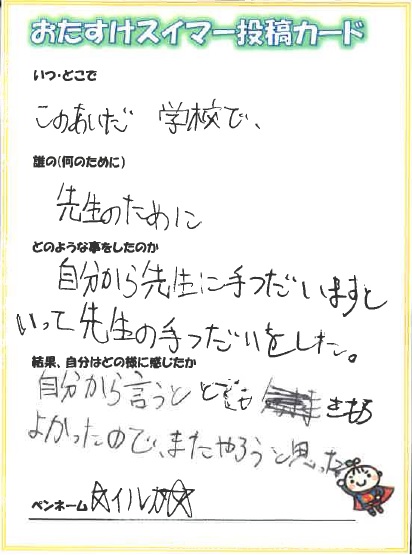 おたすけスイマー投稿カード
いつ・どこで
このあいだ 学校で、
誰の(何のために)
先生のために
どのような事をしたのか
自分から先生に手つだいますと
いって先生の手つだいをした。
結果、自分はどの様に感じたか
自分から言うと とても きもち
よかったので、またやろうと思った
ペンネーム ☆イルカ☆